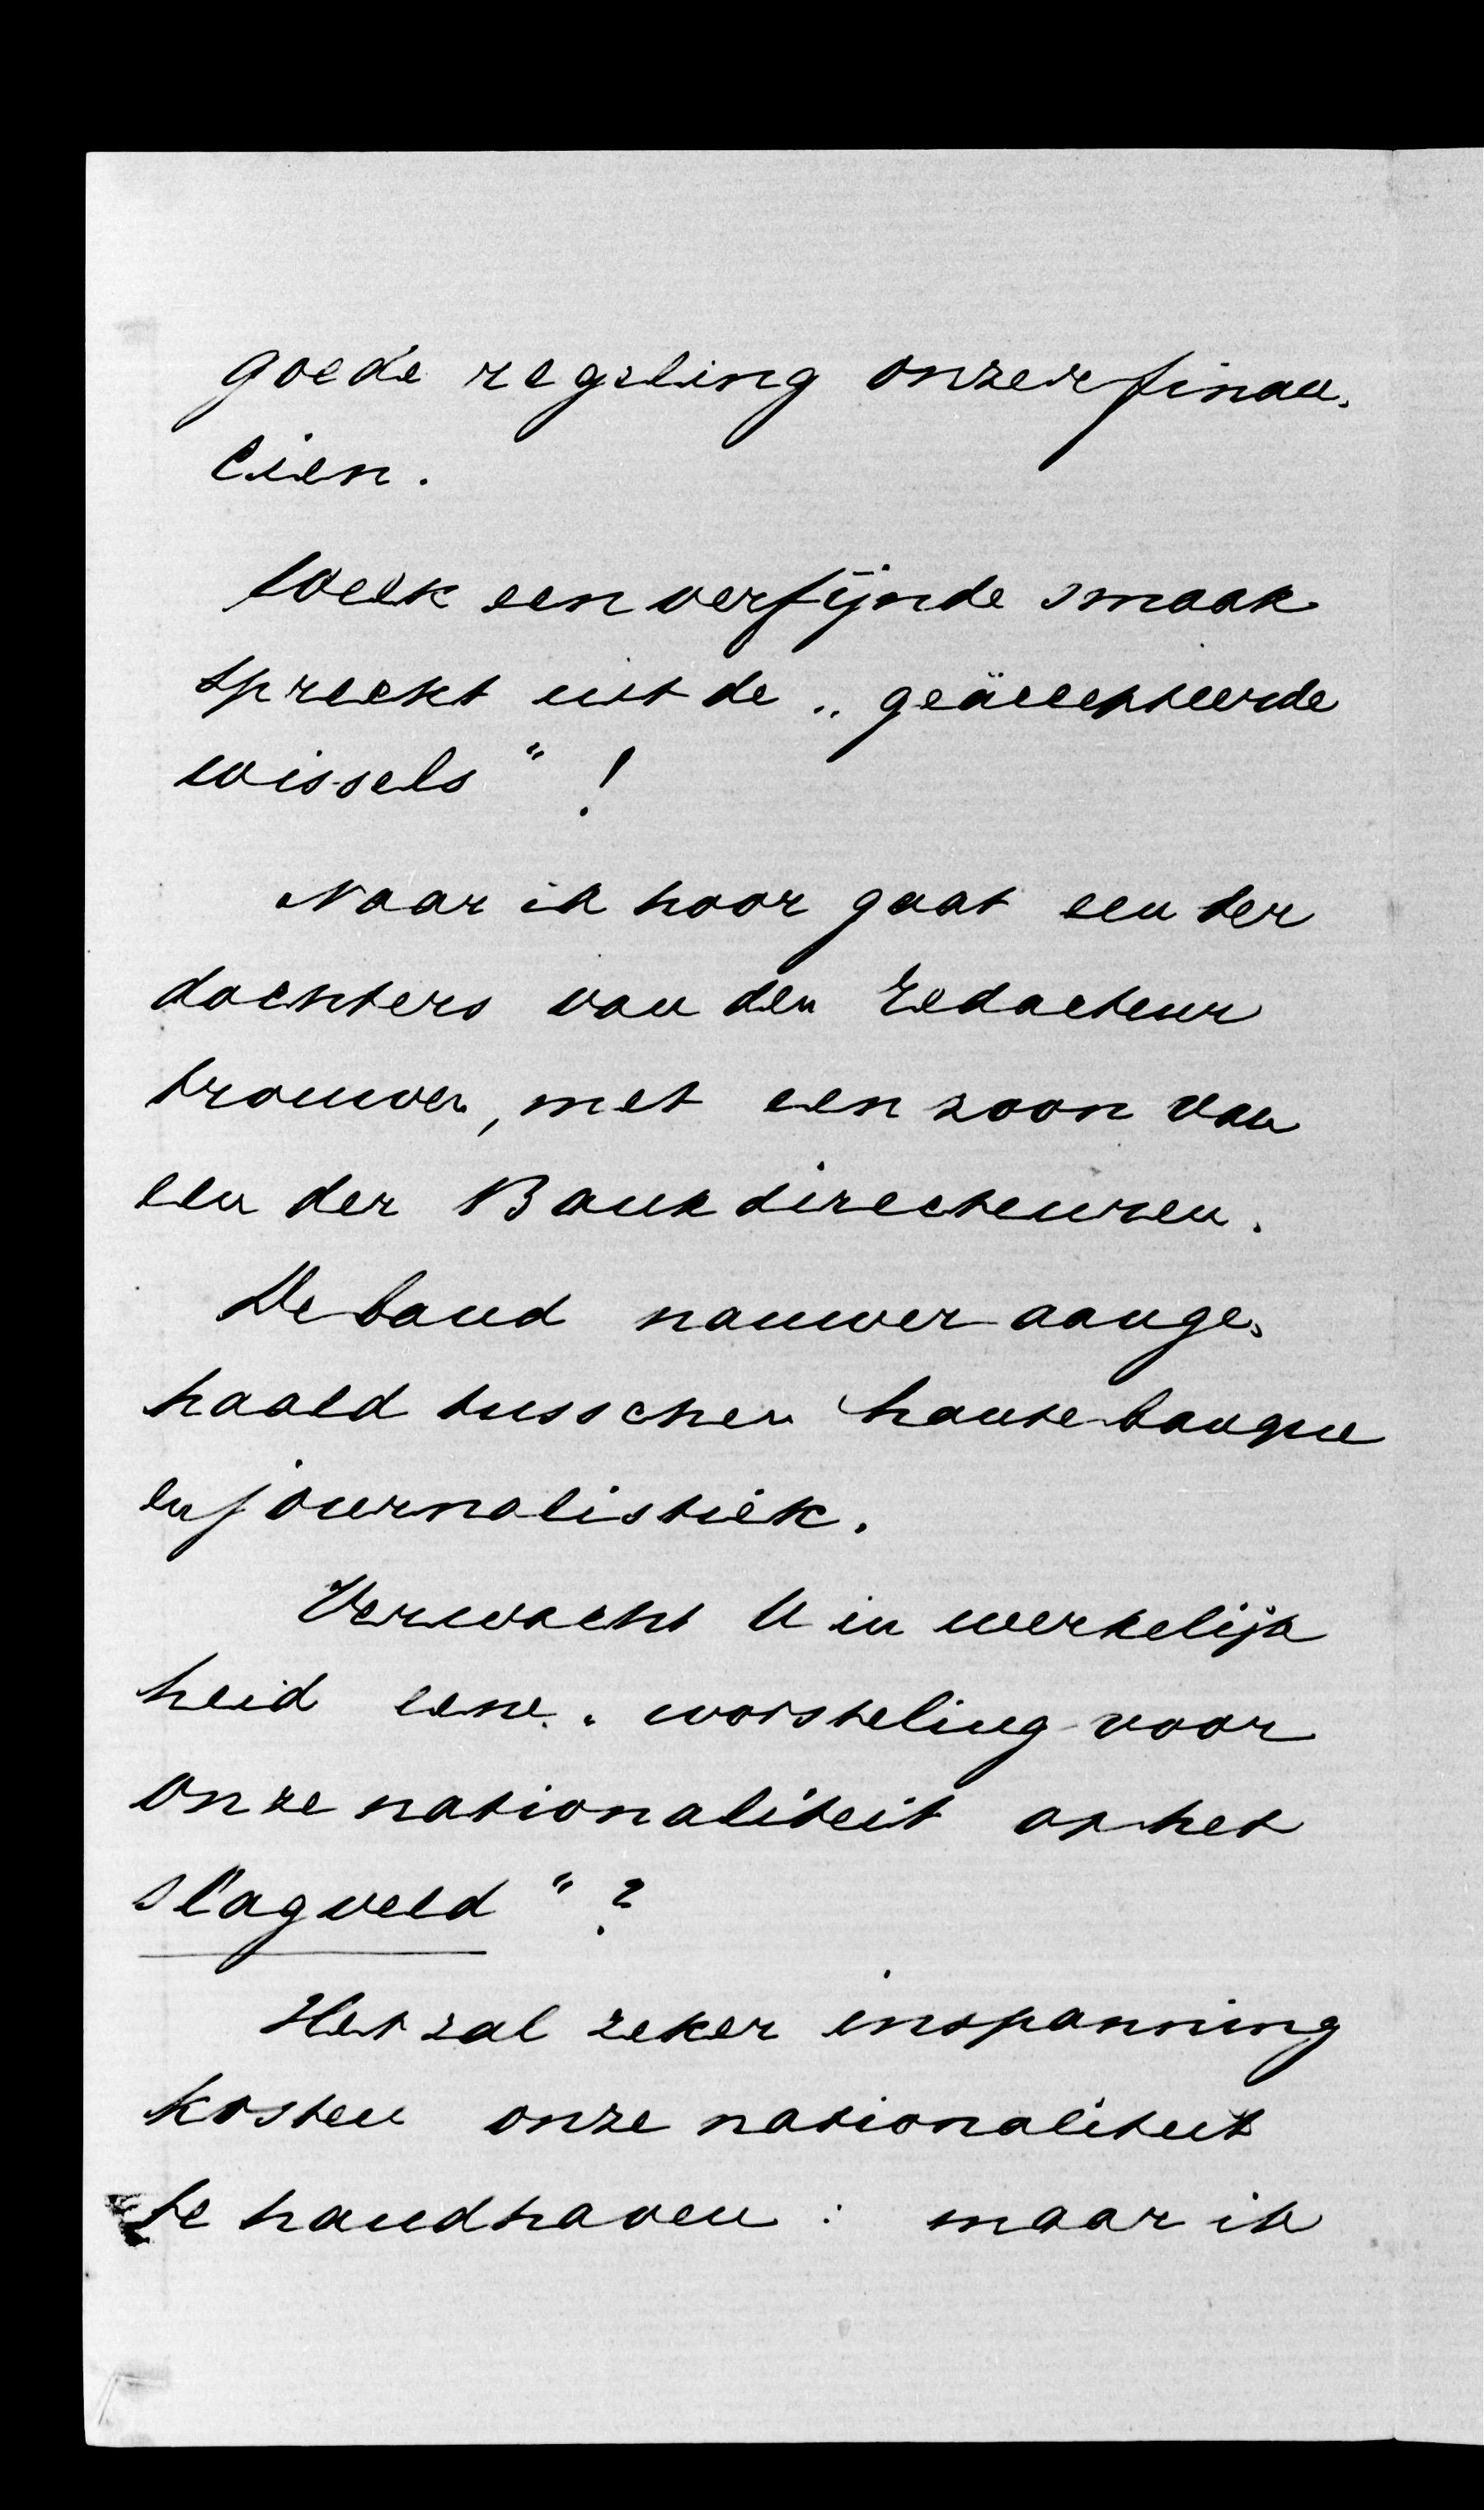 goede regeling onzer finan-
cien.
Welk een verfijnde smaak
spreekt uit de „geäccepteerde
wissels" !
Naar ik hoor gaat een der
dochters van den redacteur
trouwen, met een zoon van
een der Bankdirecteuren.
De band nauwer aange-
haald tusschen haute banque
en journalistiek.
Verwacht U in werkelijk
heid eene „worsteling voor
onze nationaliteit op het
slagveld" ?
Het zal zeker inspanning
kosten onze nationaliteit
te handhaven : maar ik